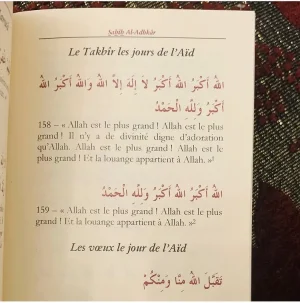 Sahîh Al-Adhkâr
Le Takbîr les jours de l'Aïd
اللهُ أَكْبَرُ اللهُ أَكْبَرُ لاَ إِلَهَ إِلاَّ اللهُ وَاللهُ أَكْبَرُ اللهُ
أَكْبَرُ وَلِلَّهِ الْحَمْدُ
158 – « Allah est le plus grand ! Allah est le plus
grand ! Il n'y a de divinité digne d'adoration
qu'Allah. Allah est le plus grand! Allah est le
plus grand ! Et la louange appartient à Allah. »¹
اللهُ أَكْبَرُ اللهُ أَكْبَرُ اللهُ أَكْبَرُ وَلِلَّهِ الْحَمْدُ
159 – « Allah est le plus grand ! Allah est le plus
grand ! Allah est le plus grand ! Et la louange
appartient à Allah. »²
Les vœux le jour de l'Aïd
تَقَبَّلَ اللهُ مِنَّا وَمِنْكُمْ